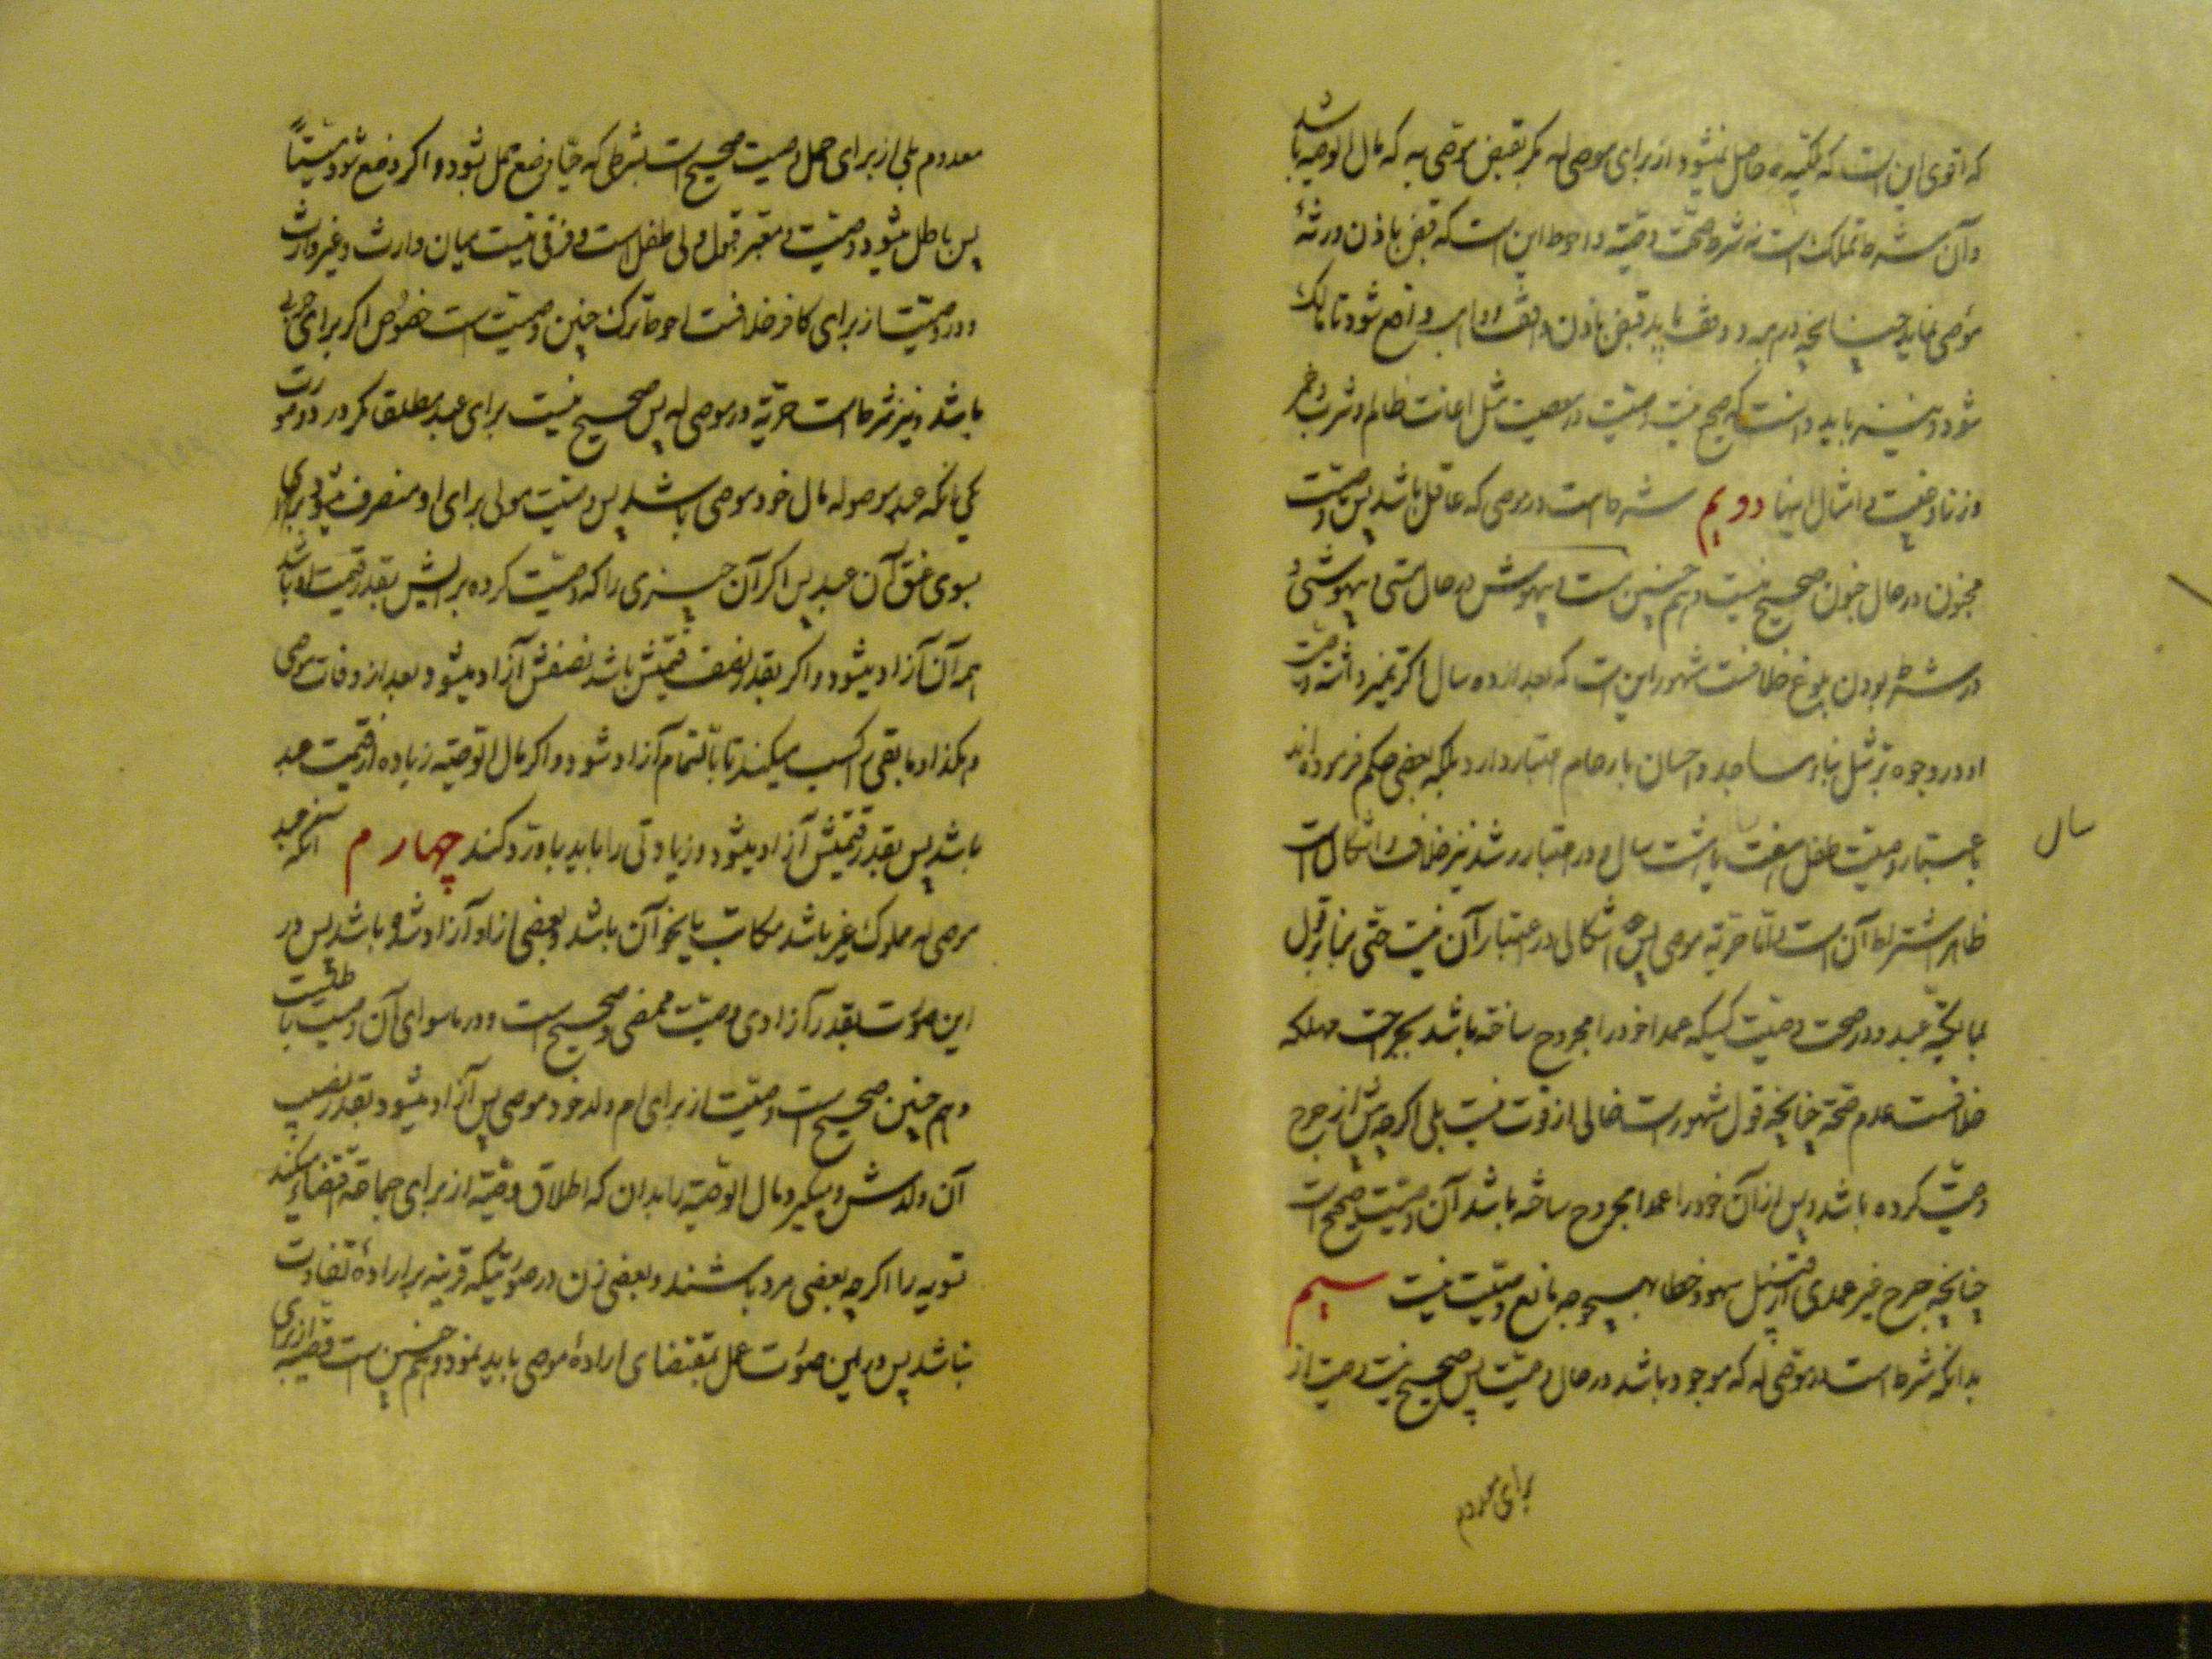 که اقوی این است که ملکیه حاصل نمیشود از برای موصی له مگر بقبض موصی به که مال الوصیه باشد
و آن شرط تملک است نه شرط صحت وصیته و احوط این است که قبض باذن ورثهٔ
موصی نماید چنانچه در هبه و وقف باید قبض باذن واقف و واهب واقع شود تا مالک
شود و نیز باید دانست که صحیح نیست وصیت در معصیت مثل اعانت ظالم و شرب خمر
و زنا و غیبت و امثال اینها دویم شرط است در موصی که عاقل باشد پس وصیت
مجنون در حال جنون صحیح نیست و هم چنین است بیهوش در حال مستی و بیهوشی و
در شرط بودن بلوغ خلافست مشهور این است که بعد از ده سال اگر تمیز داشته وصیت
او در وجوه بر مثل بناء مساجد و احسان بارحام اعتبار دارد بلکه بعضی حکم فرموده اند
باعتبار وصیت طفل هفت یا هشت سال و در اعتبار رشد نیز خلاف و اشکال است
سال
ظاهر اشتراط آن است و اما حریه موصی پس اشکالی در اعتبار آن نیست حتی بنا بر قول
بمالکیه عبد و در صحت وصیت کسیکه عمدا خود را مجروح ساخته باشد بجراحت مهلکه
خلافست عدم صحة چنانچه قول مشهور است خالی از قوت نیست بلی اگر پیش از جرح
وصیت کرده باشد و پس از آن خود را عمدا مجروح ساخته باشد آن وصیت صحیح است
چنانچه جرح غیر عمدی از قبیل سهو و خطا بهیچوجه مانع وصیت نیست سیم
بدانکه شرط است در موصی له که موجود باشد در حال وصیت پس صحیح نیست وصیت از
برای معدوم
معدوم بلی از برای حمل وصیت صحیح است بشرطی که حیا وضع حمل بشود و اگر وضع شود میتاً
پس باطل میشود وصیت و معتبر قبول ولی طفل است و فرقی نیست میان وارث و غیر وارث
و در وصیت از برای کافر خلافست احوط ترک چنین وصیت است خصوص اگر برای حربی
باشد و نیز شرط است حریة در موصی له پس صحیح نیست برای عبد مطلقا مگر در دو صورت
یکی آنکه عبد موصی له مال خود موصی باشد پس وصیت مولی برای او منصرف میشود
بسوی عتق آن عبد پس اگر آن چیزی را که وصیت کرده برایش بقدر قیمت او باشد
همه آن آزاد میشود و اگر بقدر نصف قیمتش باشد نصفش آزاد میشود بعد از وفات موصی
و هکذا و مابقی را کسب میکند تا بالتمام آزاد شود و اگر مال الوصیه زیاده از قیمت عبد
باشد پس بقدر قیمتش آزاد میشود و زیادتی را باید باو رد کنند چهارم آنکه عبد
موصی له مملوک غیر باشد مکاتب یا نحو آن باشد و بعضی از او آزاد شده باشد پس در
این صورت بقدر آزادی وصیت ممضی و صحیح است و در ماسوای آن وصیت باطلست
و هم چنین صحیح است وصیت از برای ام ولد خود موصی پس آزاد میشود بقدر نصیب
آن ولدش و میگیرد مال الوصیة را بدان که اطلاق وصیته از برای جماعة اقتضا میکند
تسویه را اگر چه بعضی مرد باشند و بعضی زن در صورتیکه قرینه بر ارادهٔ تفاوت
نباشد پس در این صورت عمل بمقتضای ارادهٔ موصی باید نمود و هم چنین است وصیه از برای